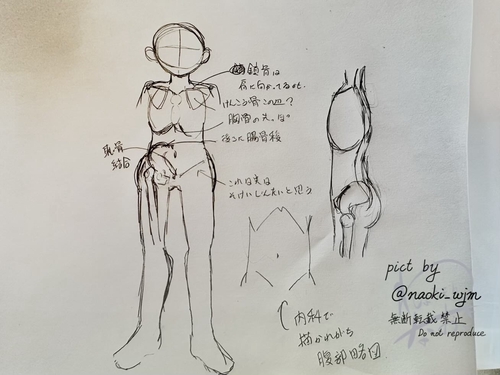 鎖骨は
肩に向かってるのせ
けんこう骨この辺?
胸骨の
後ろに腸骨稜
恥骨
結合
これは実は
そけいじんたいと思う
内科で
描かれがち
腹部略図
pict by
@naoki_wjm
無断転載禁止
Do not reproduce